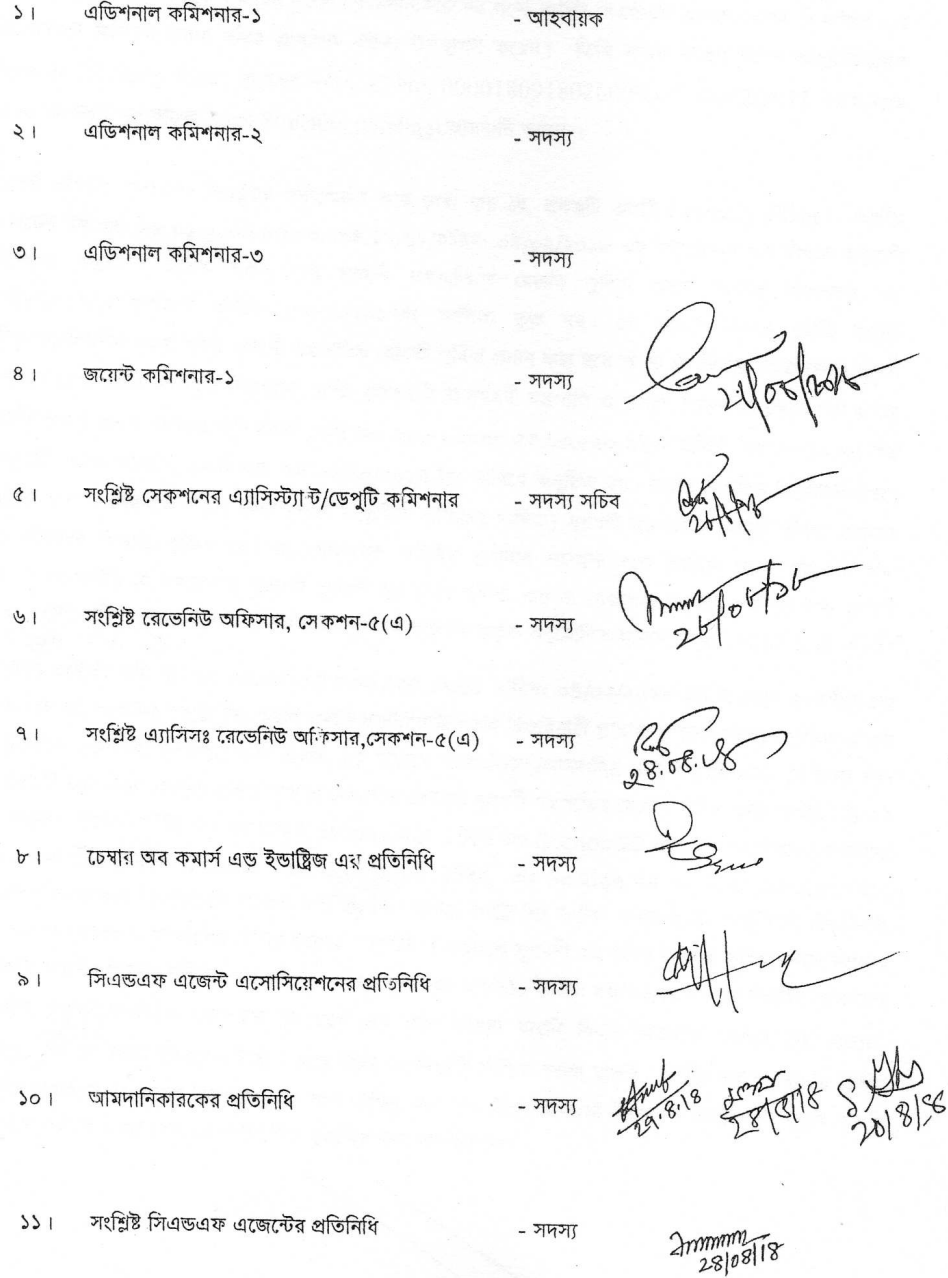 ১। এডিশনাল কমিশনার-১ - আহবায়ক
২। এডিশনাল কমিশনার-২ - সদস্য
৩। এডিশনাল কমিশনার-৩ - সদস্য
৪। জয়েন্ট কমিশনার-১ - সদস্য
৫। সংশ্লিষ্ট সেকশনের এ্যাসিস্ট্যান্ট/ডেপুটি কমিশনার - সদস্য সচিব
৬। সংশ্লিষ্ট রেভেনিউ অফিসার, সেকশন-৫(এ) - সদস্য
৭। সংশ্লিষ্ট এ্যাসিসঃ রেভেনিউ অফিসার,সেকশন-৫(এ) - সদস্য
৮। চেম্বার অব কমার্স এন্ড ইন্ডাষ্ট্রিজ এর প্রতিনিধি - সদস্য
৯। সিএন্ডএফ এজেন্ট এসোসিয়েশনের প্রতিনিধি - সদস্য
১০। আমদানিকারকের প্রতিনিধি - সদস্য
১১। সংশ্লিষ্ট সিএন্ডএফ এজেন্টের প্রতিনিধি - সদস্য
28/08/18